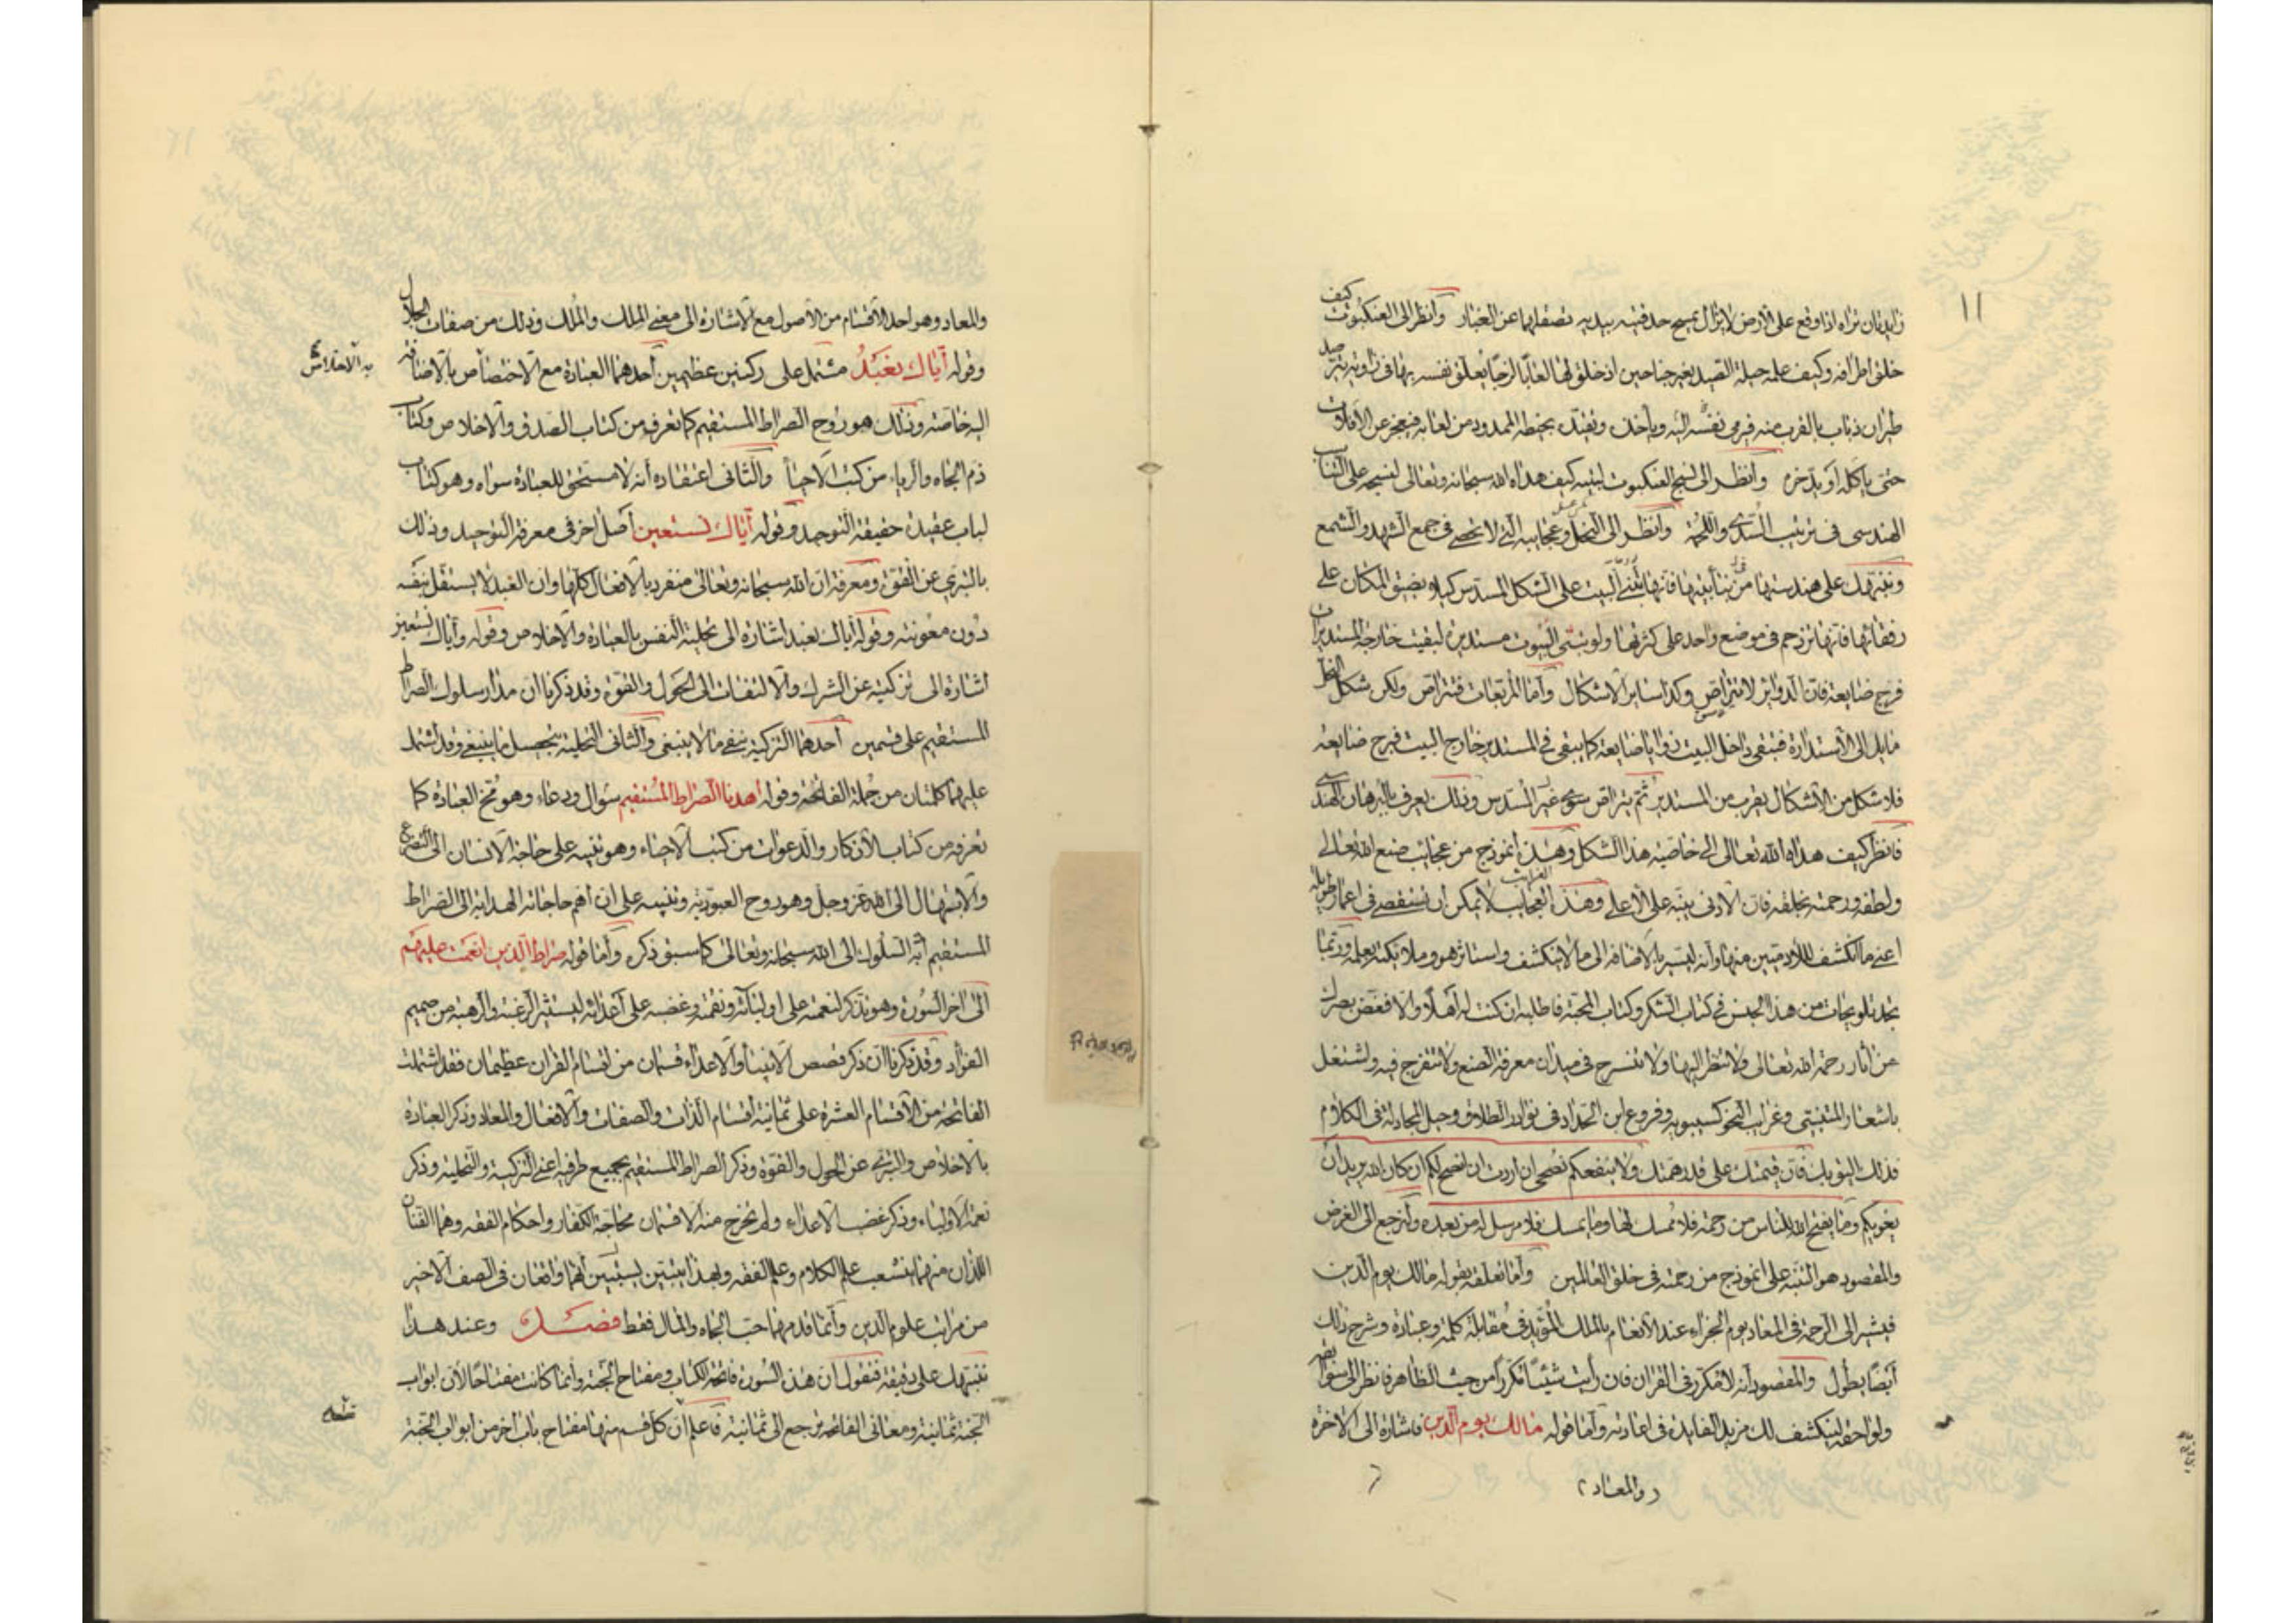 زايدتان تراه اذا وقع على الارض لا يزال يمسح حدقتيه بيديه تصقلهما عن الغبار وانظر الى العنكبوت كيف
خلق اطرافه وكيف علمه حيلة الصيد بغير جناحين اذ خلق لها لعابا لزجا يعلق نفسه بها فى زاوية يترصد
طيران ذباب بالقرب منه فيرمى نفسه اليه وياخذه ويقيده بخيطه الممدود من لعابه فيعجزه عن الافلات
حتى ياكله او يدخره وانظر الى نسج العنكبوت لبيته كيف هداه الله سبحانه وتعالى لنسجه على التناسب
الهندسى فى ترتيب السدى واللحمة وانظر الى النحل وعجايبه التى لا تحصى فى جمع الشهد والشمع
وننبهك على هندستها من بناء بيتها فانها تبنى البيت على الشكل المسدس كيلا يضيق المكان على
رفقائها فانها تزدحم فى موضع واحد على كثرتها ولو بنت البيوت مستديرة لبقيت خارجة المستديرات
فرج ضايعة فان الدواير لا تتراص وكذا ساير الاشكال واما المربعات فتتراص ولكن شكل النحل
مايل الى الاستدارة فتبقى داخل البيت زوايا ضايعة كما يبقى فى المستدير خارج البيت فرج ضايعة
فلا شكل من الاشكال يقرب من المستدير ثم يتراص سوى غير المسدس وذلك يعرف بالبرهان الهندسى
فانظر كيف هداه الله تعالى الى خاصية هذا الشكل وهذا انموذج من عجايب صنع الله تعالى
ولطفه ورحمته بخلقه فان الادنى بينة على الاعلى وهذه العجايب لا يمكن ان تستقصى فى اعمار طويلة
اعنى ما انكشف للادميين منها وانه ليسير بالاضافة الى ما لا ينكشف واستاثر هو وملائكته بعلمه وربما
تجد تلويحات من هذا الجنس فى كتاب الشكر وكتاب المحبة فاطلبه ان كنت له اهلا والا فغض بصرك
عن اثار رحمة الله تعالى ولا تنظر اليها ولا تنسرح فى ميدان معرفة الصنع ولا تتفرج فيه واشتغل
باشعار المتنبى وغرايب النحو كسيبويه وفروع ابن الحداد فى نوادر الطلاق وحيل المجادلة فى الكلام
فذلك اليق بك فان قيمتك على قدر همتك ولا ينفعكم نصحى ان اردت ان انصح لكم ان كان الله يريد ان
يغويكم وما يفتح الله للناس من رحمة فلا ممسك لها وما يمسك فلا مرسل له من بعده ولنرجع الى الغرض
والمقصود هو التنبه على انموذج من رحمته فى خلق العالمين واما تعلقه بقوله مالك يوم الدين
فيشير الى الرحمة فى المعاد يوم الجزاء عند الانعام بالملك المؤبد فى مقابلة كلمة وعبادة وشرح ذلك
ايضا يطول والمقصود انه لا مكرر فى القران فان رايت شيئا مكررا من حيث الظاهر فانظر الى سوابقه
ولواحقه لينكشف لك مزيد الفايدة فى اعادته واما قوله مالك يوم الدين فاشارة الى الاخرة
والمعاد
١١
والمعاد وهو احد الاقسام من الاصول مع الاشارة الى معنى الملك والملك وذلك من صفات الجلال
وقوله اياك نعبد مشتمل على ركنين عظيمين احدهما العبادة مع الاختصاص بالاضافة
اليه خاصة وذلك هو روح الصراط المستقيم كما تعرفه من كتاب الصدق والاخلاص وكتاب
ذم الجاه والرياء من كتب الاحياء والثانى اعتقاده انه لا مستحق للعبادة سواه وهو كتاب
لباب عقيدة حقيقة التوحيد وقوله اياك نستعين اصل اخر فى معرفة التوحيد وذلك
بالتبرى عن القوة ومعرفة ان الله سبحانه وتعالى منفرد بالافعال كلها وان العبد لا يستقل بنفسه
دون معونته وقوله اياك نعبد اشارة الى تحلية النفس بالعبادة والاخلاص وقوله واياك نستعين
اشارة الى تزكيته عن الشرك والالتفات الى الحول والقوة وقد ذكرنا ان مدار سلوك الصراط
المستقيم على قسمين احدهما التزكية بنفى ما لا ينبغى والثانى التحلية بتحصيل ما ينبغى وقد اشتمل
عليهما كلمتان من جملة الفاتحة وقوله اهدنا الصراط المستقيم سوال ودعاء وهو مخ العبادة كما
تعرفه من كتاب الاذكار والدعوات من كتب الاحياء وهو تنبيه على حاجة الانسان الى التضرع
والابتهال الى الله عز وجل وهو روح العبودية وتنبيه على ان اهم حاجاته الهداية الى الصراط
المستقيم اذ به السلوك الى الله سبحانه وتعالى كما سبق ذكره واما قوله صراط الذين انعمت عليهم
الى اخر السورة وهو تذكر لنعمته على اوليائه ونقمته وغضبه على اعدائه ليستثير الرغبة والرهبة من صميم
الفؤاد وقد ذكرنا ان ذكر قصص الانبياء والاعداء قسمان من اقسام القران عظيمان فقد اشتملت
الفاتحة من الاقسام العشرة على ثمانية اقسام الذات والصفات والافعال والمعاد وذكر العبادة
بالاخلاص والتبرى عن الحول والقوة وذكر الصراط المستقيم بجميع طرفيه اعنى التزكية والتحلية وذكر
نعمة الاولياء وذكر غضب الاعداء ولم يخرج منه الا قسمان محاجة الكفار واحكام الفقه وهما الفنان
اللذان منهما يتشعب علم الكلام وعلم الفقه وبهذا يتبين انهما واقعان فى الصف الاخير
من مراتب علوم الدين وانما قدمهما حب الجاه والمال فقط فصل وعند هذا
ننبهك على دقيقة فنقول ان هذه السورة فاتحة الكتاب ومفتاح الجنة وانما كانت مفتاحا لان ابواب
الجنة ثمانية ومعانى الفاتحة يرجع الى ثمانية فاعلم ان كل قسم منها مفتاح باب اخر من ابواب الجنة